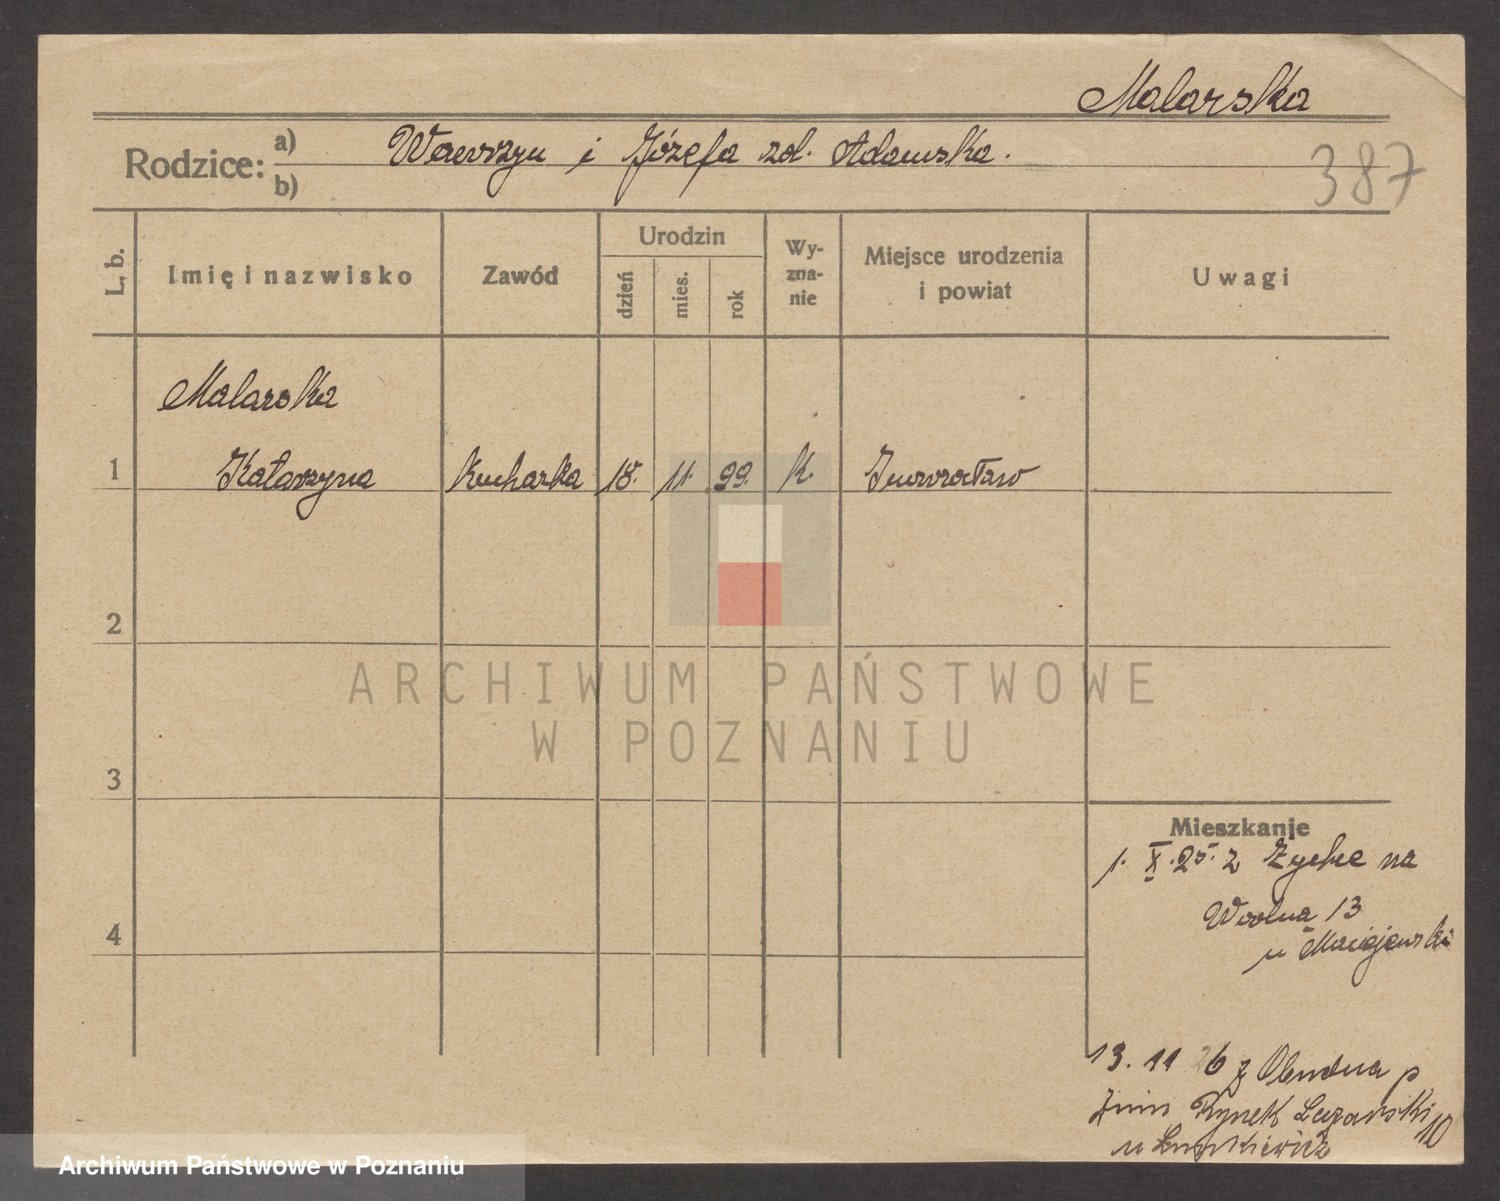 Malarska
Rodzice: a) Wawrzyn i Józefa zd. Adamska.
b)
387
L. b.
Imię i nazwisko
Zawód
Urodzin
dzień
mies.
rok
Wy-
zna-
nie
Miejsce urodzenia
i powiat
Uwagi
Malarska
1 Katarzyna Kucharka 18. 11. 99. k. Inowrocław
2
ARCHIWUM PAŃSTWOWE
W POZNANIU
3
Mieszkanie
1. X. 25. z na
Wodna 13
4
u Maciejewski
13. 11 26 z p
Żnin Rynek Łazarski 10
u
Archiwum Państwowe w Poznaniu